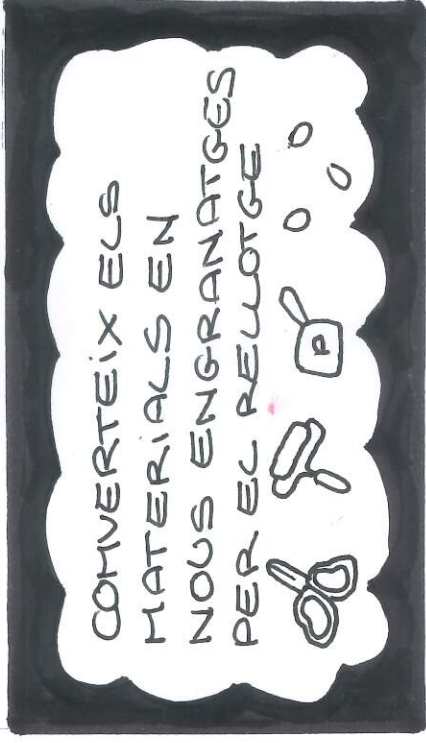 COMVERTEIX ELS
MATERIALS EN
NOUS ENGRANATGES
PER EL RELLOTGE
P